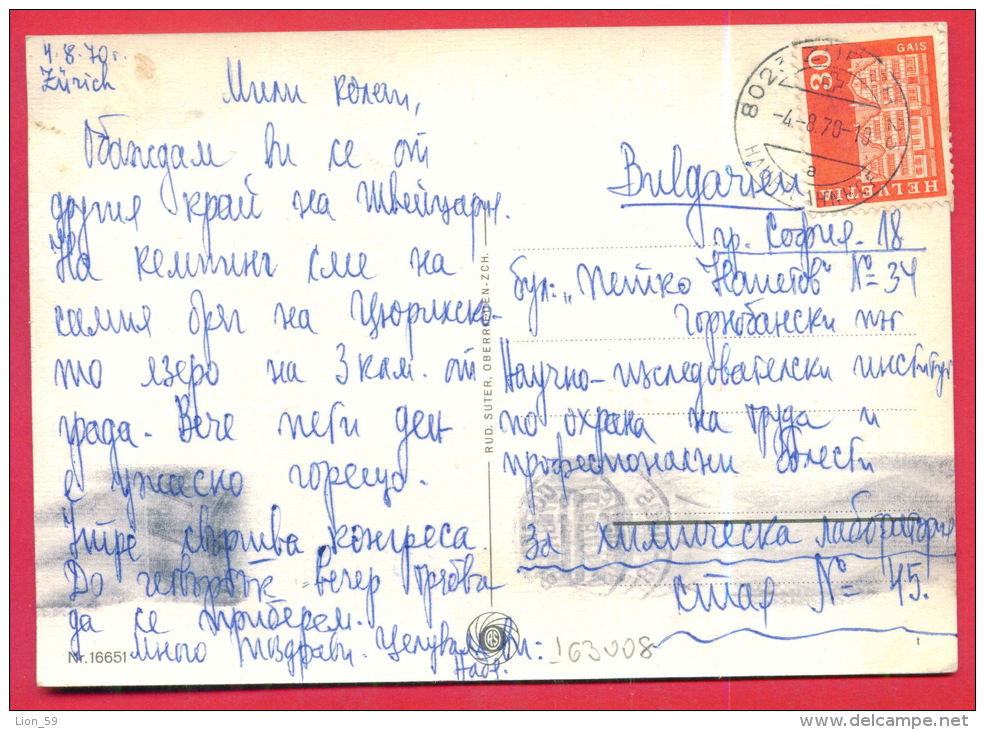 4.8.70г.
Zürich
Мили колеги,
Обаждам ви се от
другия край на Швейцария.
На кемпинг сме на
самия бряг на Цюрихско-
то езеро на 3 км. от
града. Вече пети ден
е ужасно горещо.
Утре свършва конгреса.
До четвъртък вечер трябва
да се приберем.
Много поздрави. Целувам Ви:
Nr. 16651
RUD. SUTER, OBERRIEDEN-ZCH.
8023
-4.-8.70-18
a
30
GAIS
HELVETIA
Bulgarien
гр. София - 18
бул: „Петко Напетов" № 34
Горнобански път
Научно-изследователски институт
по охрана на труда и
професионални болести
За химическа лаборатория
стая № 15.
163008
Lion_59
delcampe.net